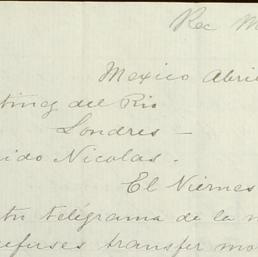 Rec M
Mexico Abri
tinez del Rio
Londres —
ido Nicolas.
El Viernes
tu telégrama de la m
efuses transfer mo